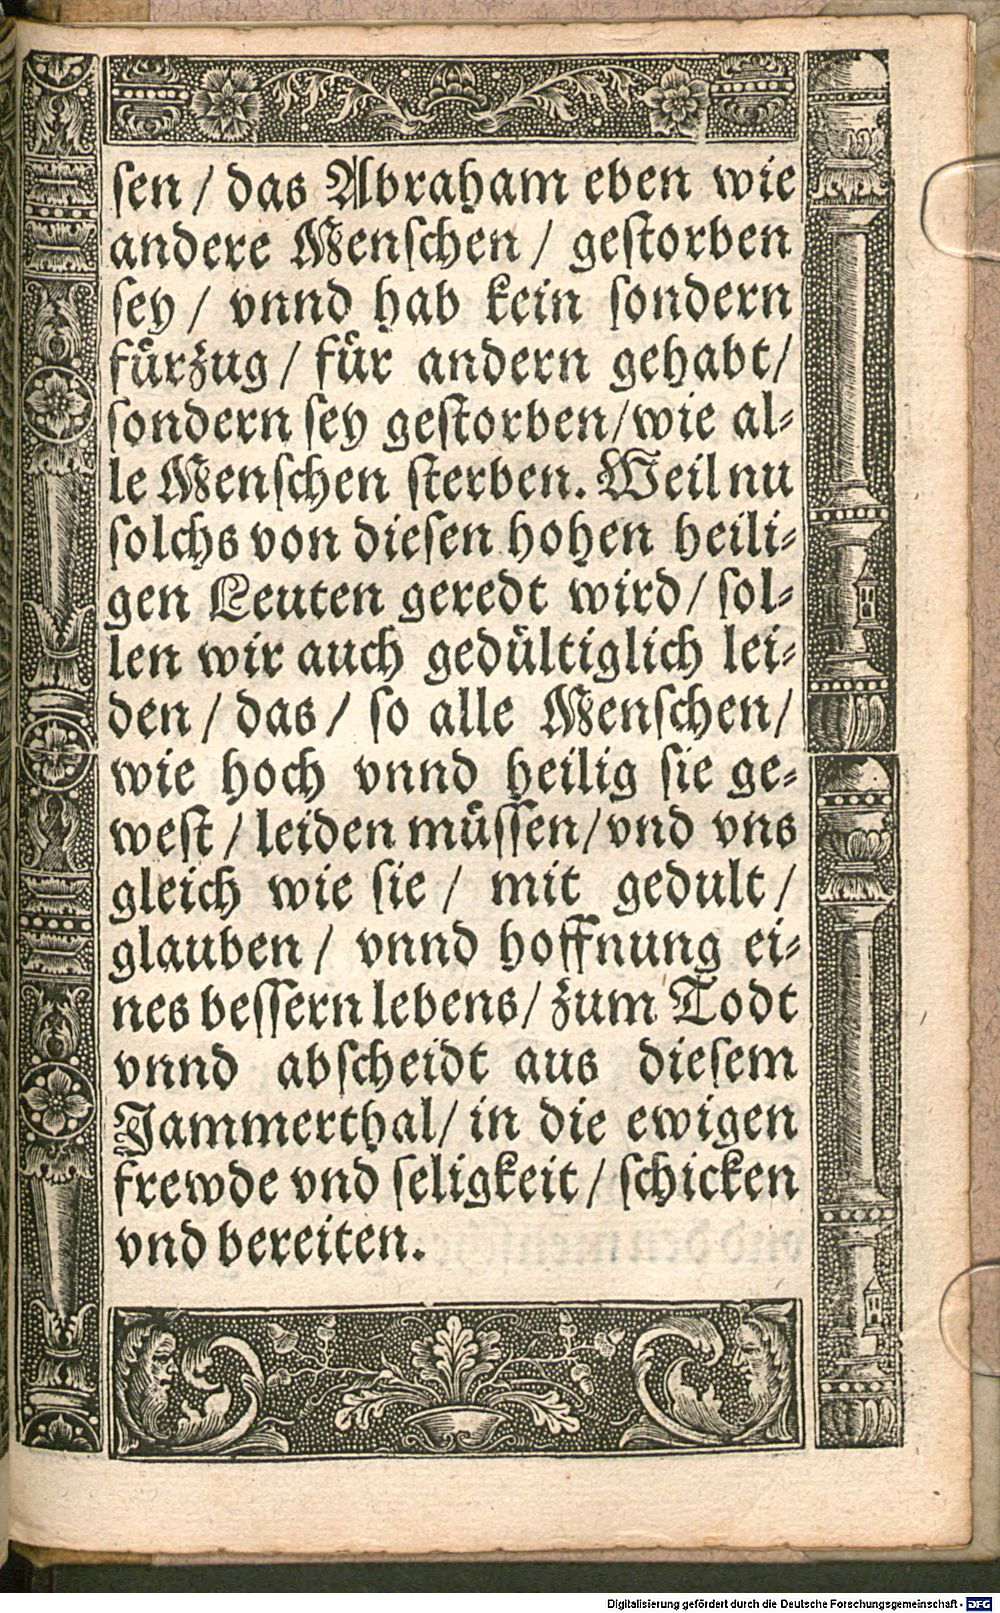 sen / das Abraham eben wie
andere Menschen / gestorben
sey / vnnd hab kein sondern
fürzug / für andern gehabt /
sondern sey gestorben / wie al-
le Menschen sterben. Weil nu
solchs von diesen hohen heili-
gen Leuten geredt wird / sol-
len wir auch gedültiglich lei-
den / das / so alle Menschen /
wie hoch vnnd heilig sie ge-
west / leiden müssen / vnd vns
gleich wie sie / mit gedult /
glauben / vnnd hoffnung ei-
nes bessern lebens / zum Todt
vnnd abscheidt aus diesem
Jammerthal / in die ewigen
frewde vnd seligkeit / schicken
vnd bereiten.
Digitalisierung gefördert durch die Deutsche Forschungsgemeinschaft - DFG